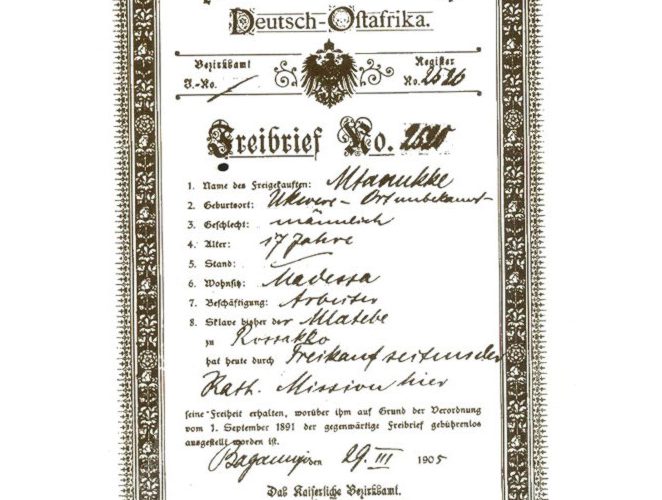 Deutsch-Ostafrika.
Bezirksamt
J.-No.
Register
No. 2520
Freibrief No. 2520
1. Name des Freigekauften: Mtanukke
2. Geburtsort: Ukwere - Ort unbekannt
3. Geschlecht: männlich
4. Alter: 17 Jahre
5. Stand:
6. Wohnsitz: Madessa
7. Beschäftigung: Arbeiter
8. Sklave bisher der Matebe
zu Kossakko
hat heute durch Freikauf seitens der
Kath. Mission hier
seine Freiheit erhalten, worüber ihm auf Grund der Verordnung
vom 1. September 1891 der gegenwärtige Freibrief gebührenlos
ausgestellt worden ist.
den 29. III 1905
Das Kaiserliche Bezirksamt.